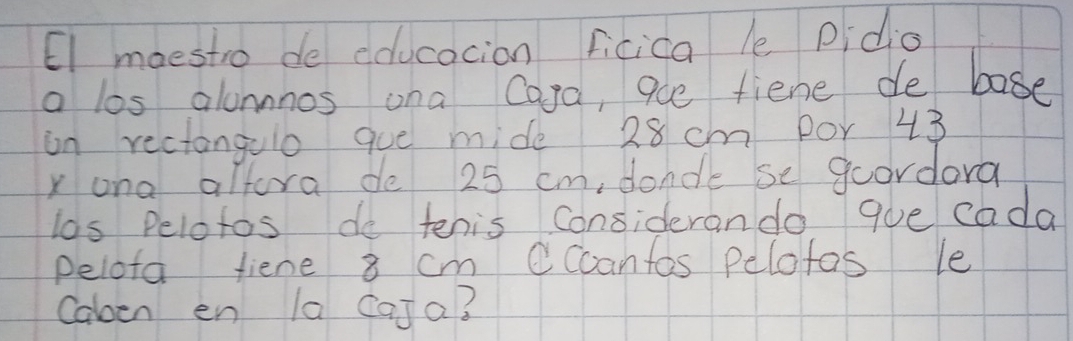 El maestro de educacion Ficica le Pidio
a los alumnos una Caja, que tiene de base
un rectangulo que mide 28 cm por 43
y una altura de 25 cm, donde se guardara
las Pelotas de tenis Considerando que cada
Pelota tiene 8 cm ¿Cuantas Pelotas le
Caben en la caja?